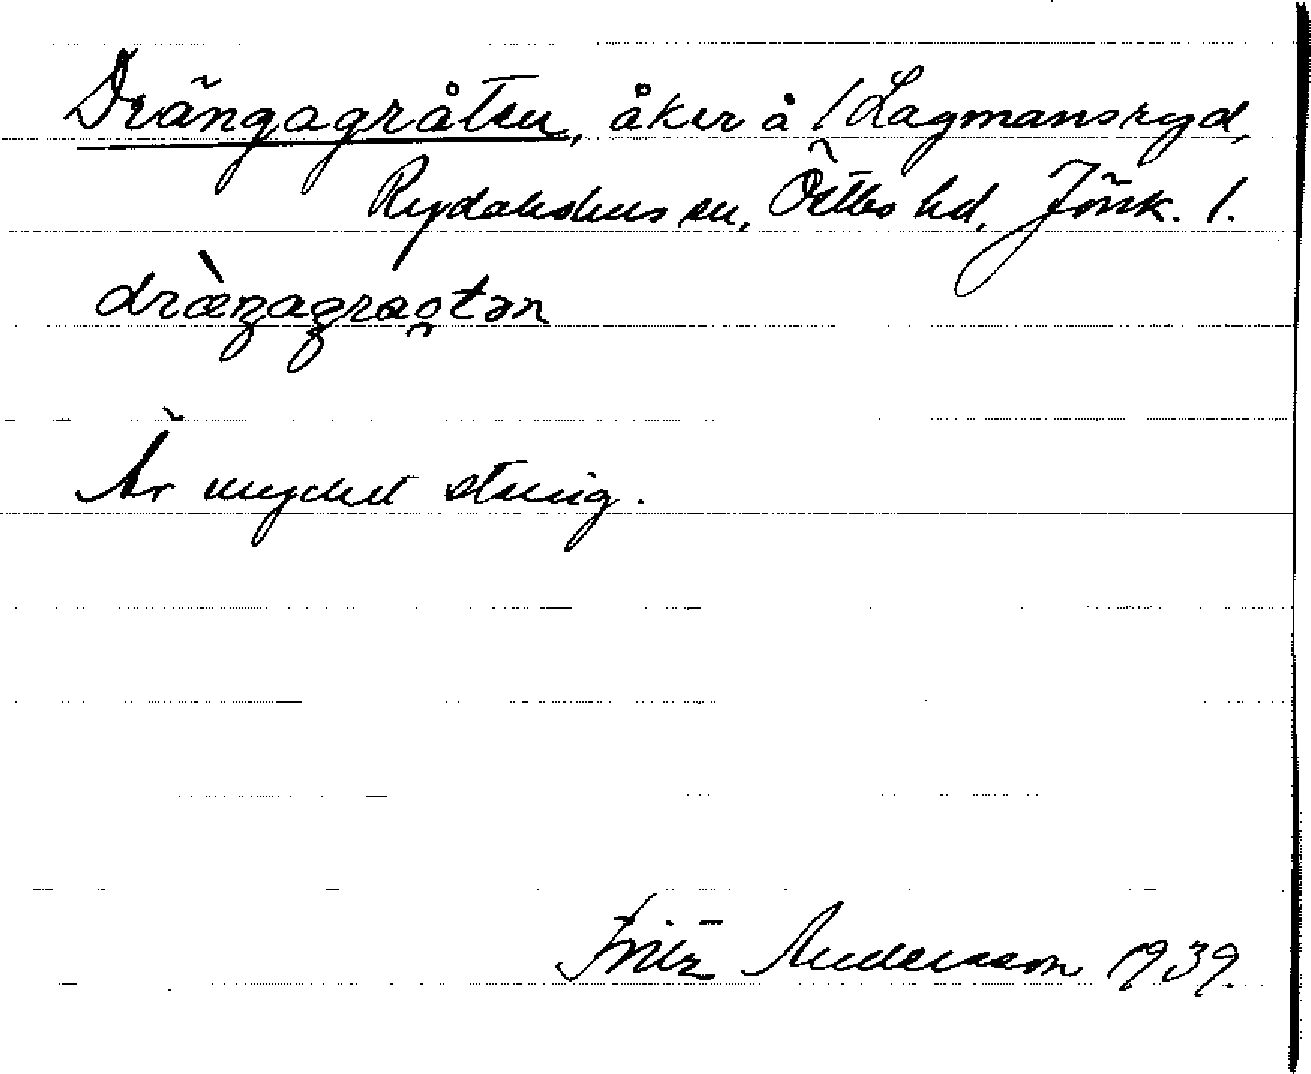 Drängagråten, åker å /Lagmansryd,
Rydaholms sn, Östbo hd, Jönk. l.
dræ̀ŋagrao̯tən
Är mycket stenig.
Fritz Andersson 1939.